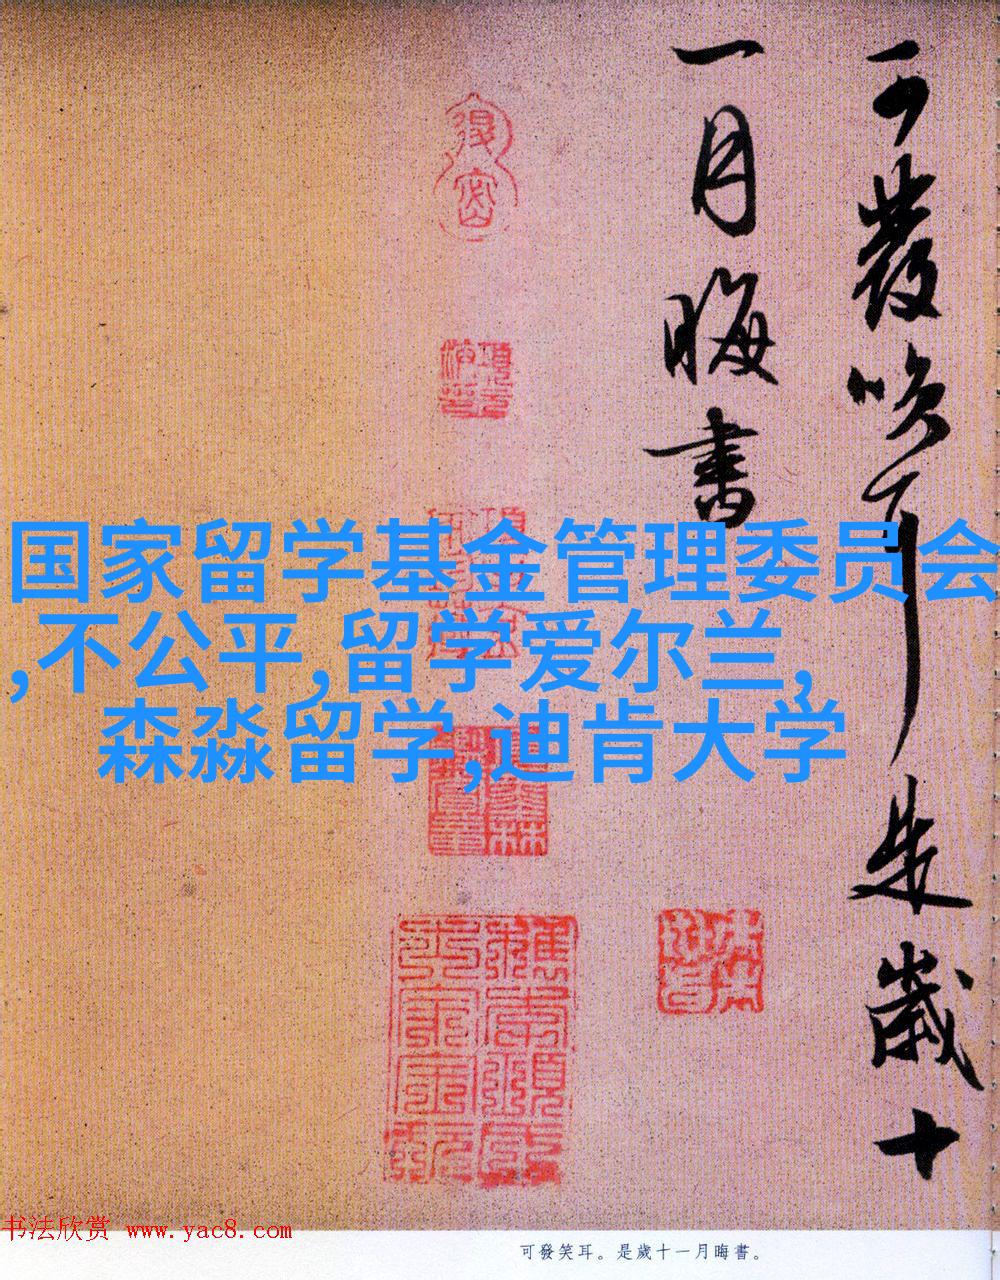 可發笑耳是歲十
一月晦書
国家留学基金管理委员会
,不公平,留学爱尔兰,
森淼留学,迪肯大学
书法欣赏 www.yac8.com
可發笑耳。是歲十一月晦書。